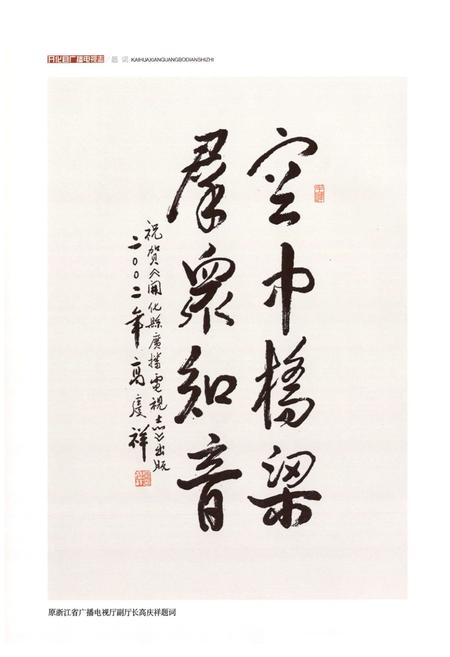 开化县广播电视志 / 题词 KAIHUAXIANGUANGBODIANSHIZHI
空中橋梁
羣眾知音
祝賀《開化縣廣播電視志》出版
二〇〇二年 高慶祥
原浙江省广播电视厅副厅长高庆祥题词